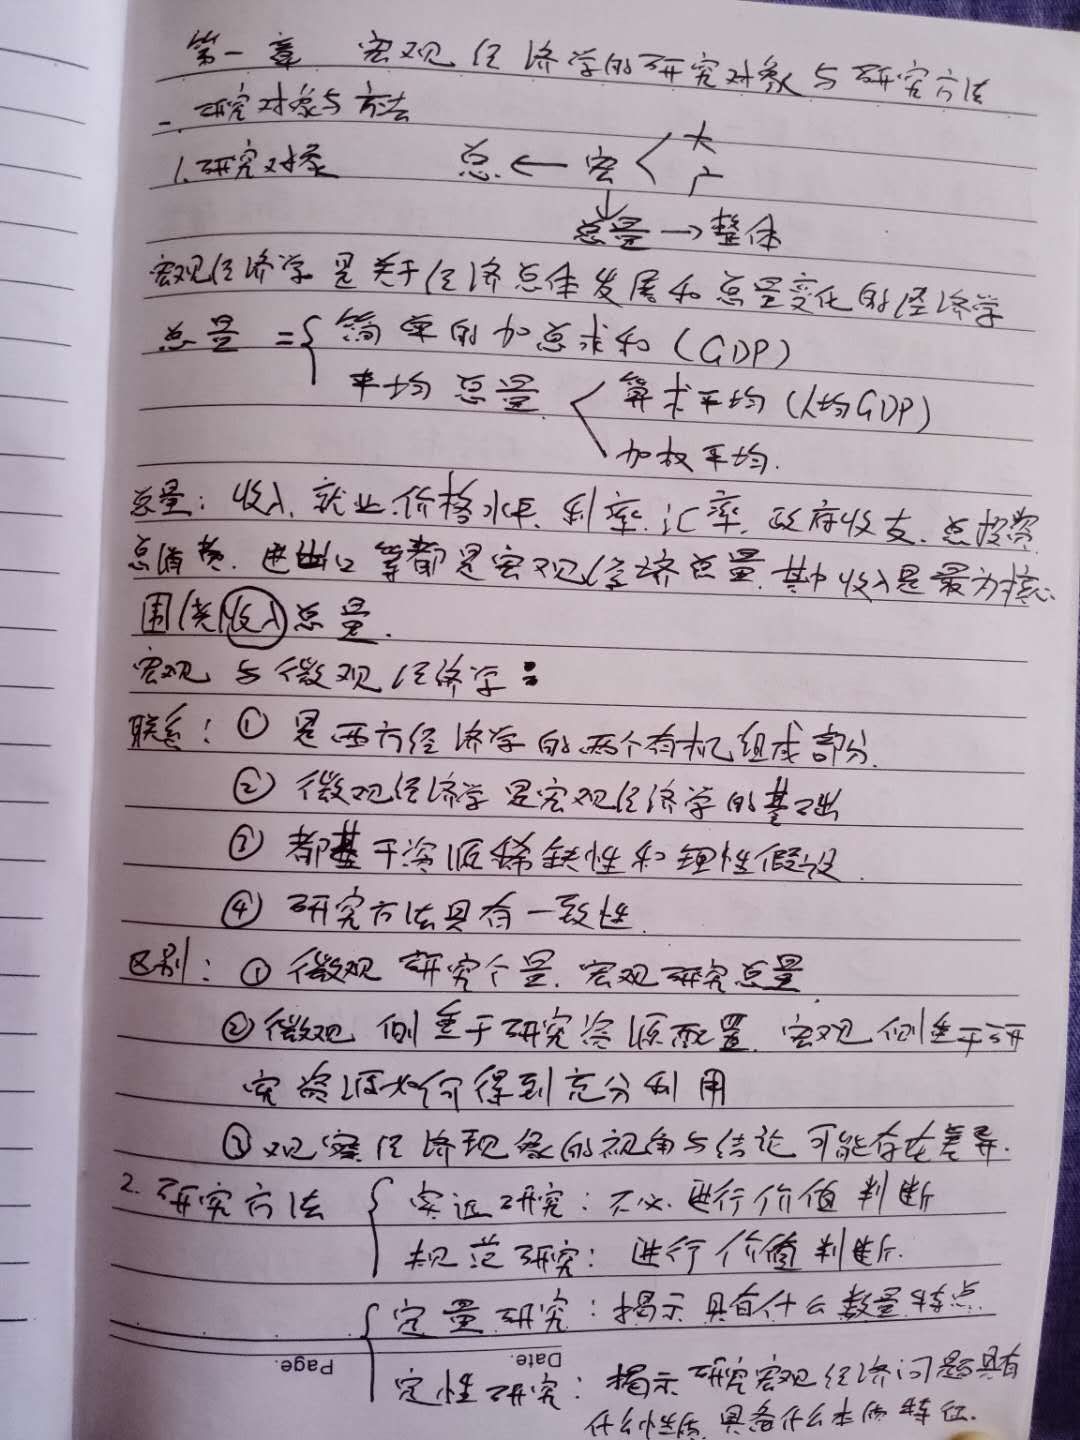 第一章 宏观经济学的研究对象与研究方法
一.研究对象与方法
1.研究对象 总←宏<大
广
↓
总量→整体
宏观经济学是关于经济总体发展和总量变化的经济学
总量={简单的加总求和(GDP)
平均总量<算术平均(人均GDP)
加权平均.
总量:收入、就业、价格水平、利率、汇率、政府收支、总投资
总消费、进出口等都是宏观经济总量,其中收入是最为核心
围绕收入总量.
宏观与微观经济学:
联系:①是西方经济学的两个有机组成部分.
②微观经济学是宏观经济学的基础
③都基于资源稀缺性和理性假设.
④研究方法具有一致性.
区别:①微观研究个量.宏观研究总量
②微观侧重于研究资源配置.宏观侧重于研
究资源如何得到充分利用
③观察经济现象的视角与结论可能存在差异.
2.研究方法{实证研究:不必进行价值判断
规范研究:进行价值判断.
{定量研究:揭示具有什么数量特点
Date. Page.
定性研究:揭示研究宏观经济问题具有
什么性质,具备什么本质特征.